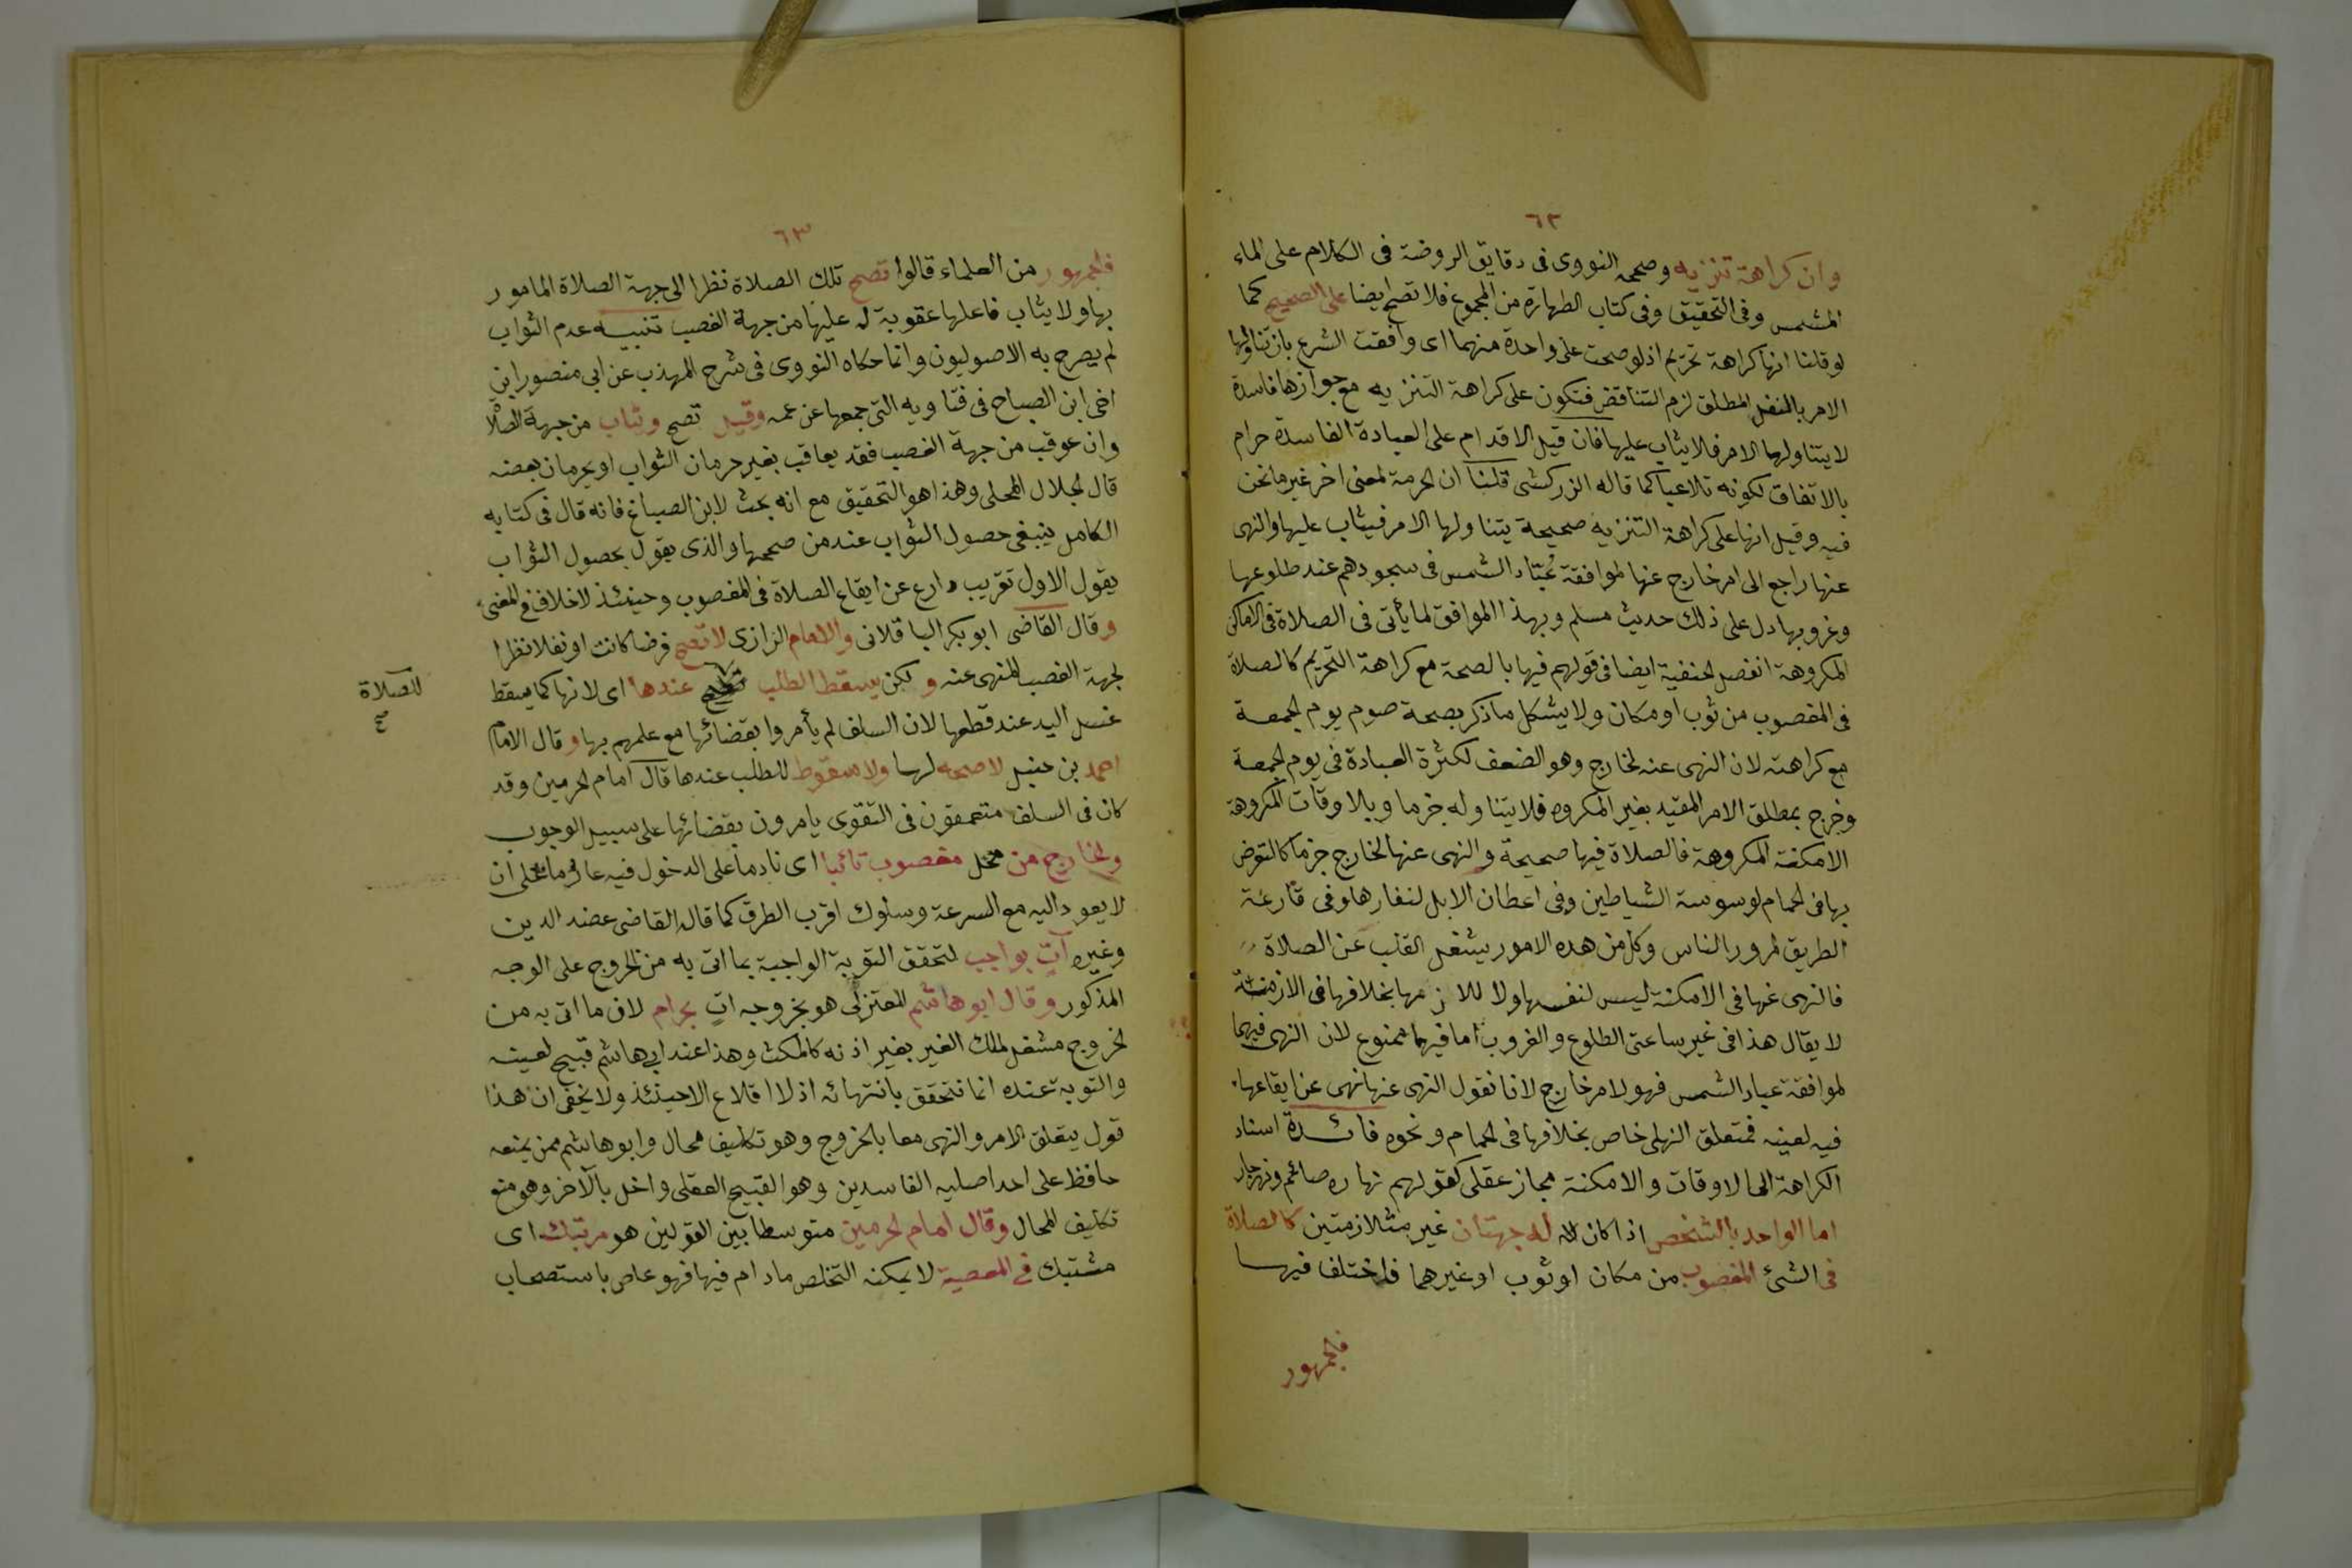 ٦٢
وان كراهة تنزيه وصححه النووى فى دقايق الروضة فى الكلام على الماء
المشمس وفى التحقيق وفى كتاب الطهارة من المجموع فلا تصح ايضا على الصحيح كما
لو قلنا انها كراهة تحريم اذ لو صحت على واحدة منهما اى وافقت الشرع بان تناولها
الامر بالنفل المطلق لزم التناقض فتكون على كراهة التنزيه مع جوازها فاسدة
لا يتناولها الامر فلا يثاب عليها فان قيل الاقدام على العبادة الفاسدة حرام
بالاتفاق لكونه تلاعبا كما قاله الزركشى قلنا ان الحرمة لمعنى اخر غير ما نحن
فيه وقيل انها على كراهة التنزيه صحيحة يتناولها الامر فيثاب عليها والنهى
عنها راجع الى امر خارج عنها لموافقة عُبّاد الشمس فى سجودهم عند طلوعها
وغروبها دل على ذلك حديث مسلم وبهذا الموافق لما يأتى فى الصلاة فى الاماكن
المكروهة انفصل الحنفية ايضا فى قولهم فيها بالصحة مع كراهة التحريم كالصلاة
فى المغصوب من ثوب او مكان ولا يشكل ما ذكر بصحة صوم يوم الجمعة
مع كراهته لان النهى عنه لخارج وهو الضعف لكثرة العبادة فى يوم الجمعة
وخرج بمطلق الامر المقيد بغير المكروه فلا يتناوله جزما وبالاوقات المكروهة
الامكنة المكروهة فالصلاة فيها صحيحة والنهى عنها لخارج جزما كالتعرض
بها فى الحمام لوسوسة الشياطين وفى اعطان الابل لنفارها وفى قارعة
الطريق لمرور الناس وكل من هذه الامور يشغل القلب عن الصلاة
فالنهى عنها فى الامكنة ليس لنفسها ولا للازمها بخلافها فى الازمنة
لا يقال هذا فى غير ساعتى الطلوع والغروب اما فيهما فممنوع لان النهى فيهما
لموافقة عباد الشمس فهو لامر خارج لانا نقول النهى عنها نهى عن ايقاعها
فيه لعينه فمتعلق النهى خاص بخلافها فى الحمام ونحوه فائدة اسناد
الكراهة الى الاوقات والامكنة مجاز عقلى كقولهم نهاره صائم ونهر جار
اما الواحد بالشخص اذا كان له جهتان غير متلازمتين كالصلاة
فى الشئ المغصوب من مكان او ثوب او غيرهما فاختلف فيها
فالجمهور
٦٣
فالجمهور من العلماء قالوا تصح تلك الصلاة نظرا الى جهة الصلاة المامور
بها ولا يثاب فاعلها عقوبة له عليها من جهة الغصب تنبيه عدم الثواب
لم يصرح به الاصوليون وانما حكاه النووى فى شرح المهذب عن ابى منصور ابن
اخى ابن الصباح فى فتاويه التى جمعها عن عمه وقيل تصح ويثاب من جهة الصلاة
وان عوقب من جهة الغصب فقد يعاقب بغير حرمان الثواب او بحرمان بعضه
قال الجلال المحلى وهذا هو التحقيق مع انه بحث لابن الصباغ فانه قال فى كتابه
الكامل ينبغى حصول الثواب عند من صححها والذى يقول بحصول الثواب
يقول الاول تقريب رادع عن ايقاع الصلاة فى المغصوب وحينئذ لاخلاف فى المعنى
وقال القاضى ابو بكر الباقلانى والامام الرازى لا تصح فرضا كانت او نفلا نظرا
لجهة الغصب المنهى عنه ولكن يسقط الطلب عندها اى لانها كما يسقط
للصلاة
صح
غسل اليد عند قطعها لان السلف لم يأمروا بقضائها مع علمهم بها وقال الامام
احمد بن حنبل لا صحه لها ولا سقوط للطلب عندها قال امام الحرمين وقد
كان فى السلف متعمقون فى التقوى يامرون بقضائها على سبيل الوجوب
والخارج من محل مغصوب تائبا اى نادما على الدخول فيه عازما على ان
لا يعود اليه مع السرعة وسلوك اقرب الطرق كما قاله القاضى عضد الدين
وغيره آتٍ بواجب لتحقق التوبة الواجبة بما اتى به من الخروج على الوجه
المذكور وقال ابو هاشم المعتزلى هو بخروجه اتٍ بحرام لان ما اتى به من
الخروج مشغل لملك الغير بغير اذنه كالمكث وهذا عند ابى هاشم قبيح لعينه
والتوبة عنده انما تتحقق بانتهائه اذ لا اقلاع الا حينئذ ولا يخفى ان هذا
قول يتعلق الامر والنهى معا بالخروج وهو تكليف محال وابو هاشم ممن يمنعه
حافظ على احد اصليه الفاسدين وهو القبيح العقلى واخل بالآخر وهو منع
تكليف المحال وقال امام الحرمين متوسطا بين القولين هو مرتبك اى
مشتبك فى المعصية لا يمكنه التخلص مادام فيها فهو عاص باستصحاب